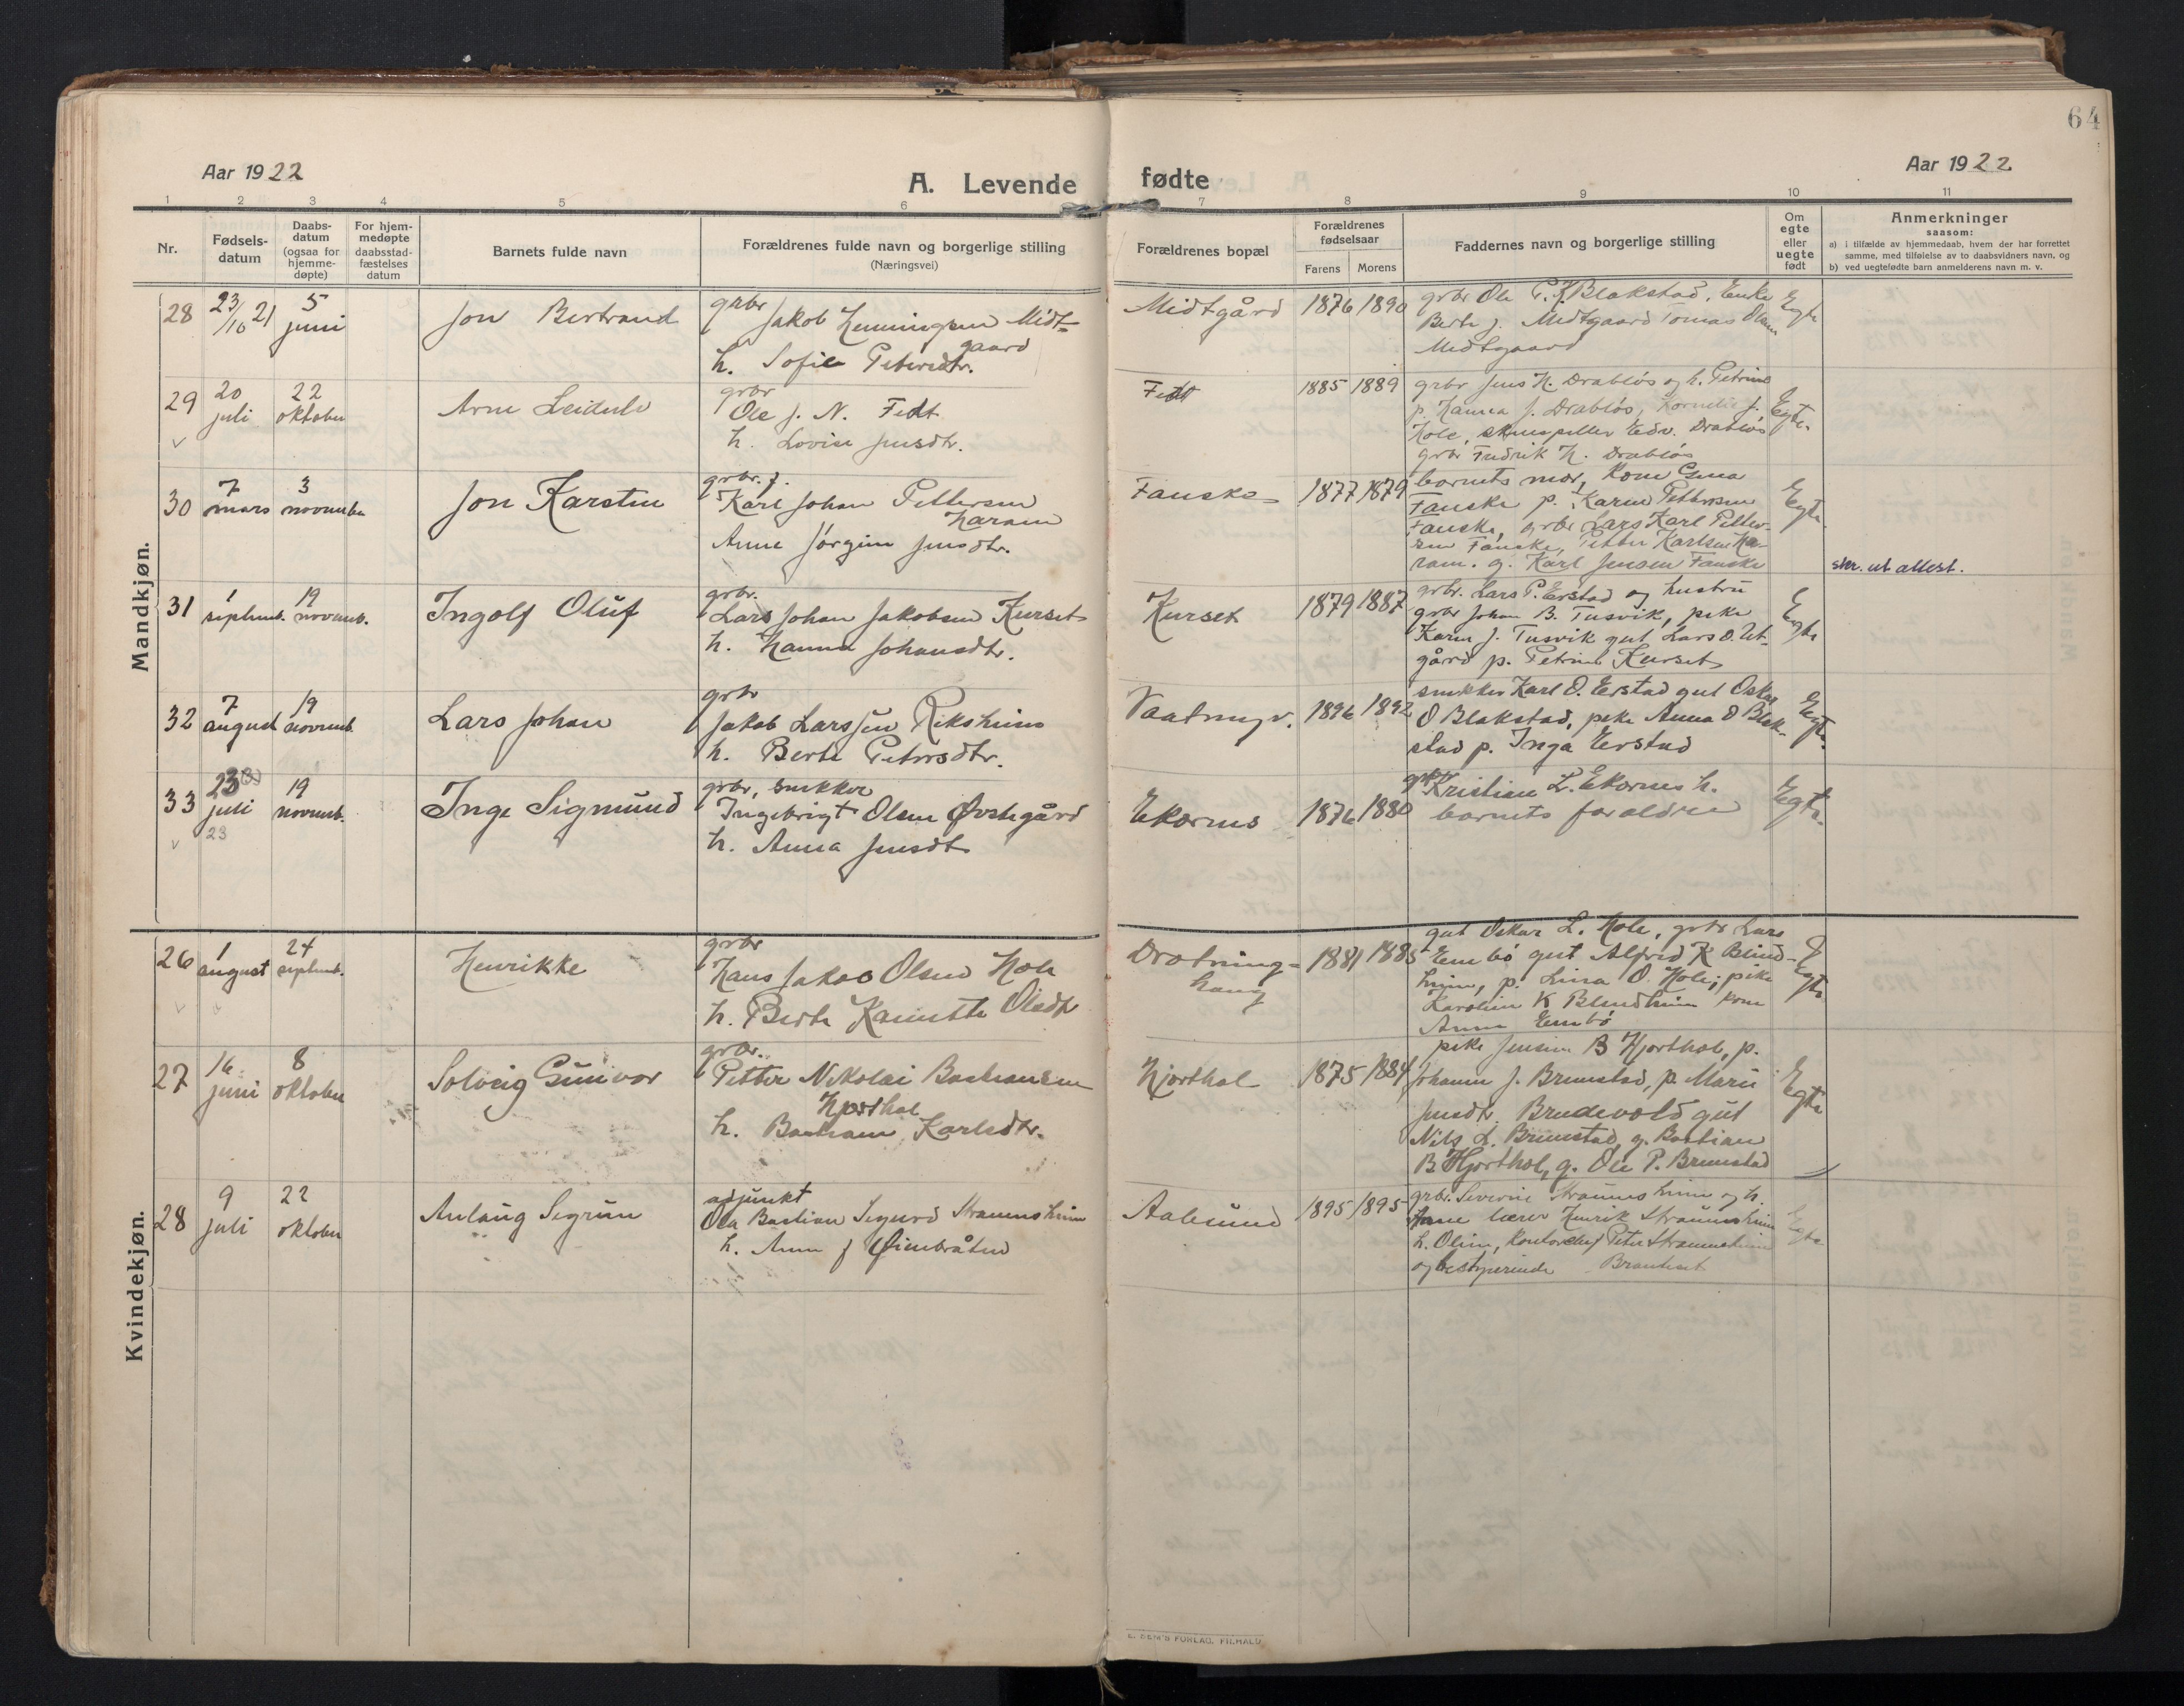 64
Aar 1922
A. Levende fødte
Aar 1922
1 2 3 4 5 6 7 8 9 10 11
Nr.
Fødsels-
datum
Daabs-
datum
(ogsaa for
hjemme-
døpte)
For hjem-
medøpte
daabsstad-
fæstelses
datum
Barnets fulde navn
Forældrenes fulde navn og borgerlige stilling
(Næringsvei)
Forældrenes bopæl
Forældrenes
fødselsaar
Farens Morens
Faddernes navn og borgerlige stilling
Om
egte
eller
uegte
født
Anmerkninger
saasom:
a) i tilfælde av hjemmedaab, hvem der har forrettet
samme, med tilføielse av to daabsvidners navn, og
b) ved uegtefødte barn anmelderens navn m. v.
Mandkjøn.
28
23/10 21
5
juni
Jon Bertrand
grbr
Jakob Henningsen Midt-
gaard
h. Sofie Petersdtr.
Midtgård
1876 1890
grbr Ole P. K Blakstad, Enke
Berte J. Midtgaard Tomas Olsen
Midtgaard
Egte
29
20
juli
22
oktober
Arne Leidulv
grbr
Ole J. N. Fedt
h. Lovise Jensdtr.
Fedt
1885 1889
grbr Jens N. Drabløs og h. Petrine
p. Hanna J. Drabløs, Kornelie J.
Hole, Edv. Drabløs
grbr Fredrik N. Drabløs
Egte.
30
7
mars
3
novembr
Jon Karsten
grbr. f.
Karl Johan Pettersen
Haram
Anne Jørgine Jensdtr.
Fauske
1877 1879
barnets mor, kone Gina
Fauske p. Karen Pettersen
Fauske, grbr Lars Karl Petter-
sen Fauske, Petter Karlsen Ha-
ram. g. Karl Jensen Fauske
Egte.
skr. ut attest.
31
1
septemb.
19
novemb.
Ingolf Oluf
grbr.
Lars Johan Jakobsen Kurset
h. Hanna Johansdtr.
Kurset
1879 1887
grbr. Lars P. Erstad og hustru
grbr Johan B. Tusvik, pike
Karen J. Tusvik gut Lars O. Ut-
gård p. Petrine Kurset
Egte
32
7
august
19
novemb.
Lars Johan
grbr
Jakob Larssen Riksheim
h. Berte Petersdtr.
1896 1892
snekker Karl O. Erstad gut Oskar
O Blakstad, pike Anna O Blak-
stad p. Inga Erstad
Egte.
33
23
juli
23
19
novemb.
Inge Sigmund
grbr, snekker
Ingebrigt Olsen Øvstegård
h. Anna Jensdtr
Ekornes
1876 1880
grbr Kristian L. Ekornes h.
barnets foraldre
Egte.
Kvindekjøn.
26
1
august
24
septemb.
Henrikke
grbr
Hans Jakob Olsen Hole
h. Berte Olsdtr
Drotning-
haug
1881 1885
gut Oskar L. Hole, grbr Lars
Embø gut Alfred K Blind-
heim, p. Lina O. Hole, pike
Karoline K Blindheim kone
Anna Embø
Egte.
27
16
juni
8
oktober
Solveig Gunvor
grbr.
Petter Nikolai Bastiansen
Hjorthol
h. Bastiane Karlsdtr.
Hjorthol
1875 1884
pike Jensine B Hjorthol, p.
Johanne J. Brunstad, p. Marie
Jensdtr. Brudevold gut
Nils L. Brunstad, g. Bastian
B Hjorthol, g. Ole P. Brunstad
Egte
28
9
juli
22
oktober
Aulaug Segrun
adjunkt
Ola Bastian Sigurd Straumsheim
h. Anne J Øienbråten
Aalesund
1895 1895
grbr. Severin Straumsheim og h.
Anne lærer Henrik Straumsheim
h. Oline, Peter Straumsheim
og bestyrerinde
Egte